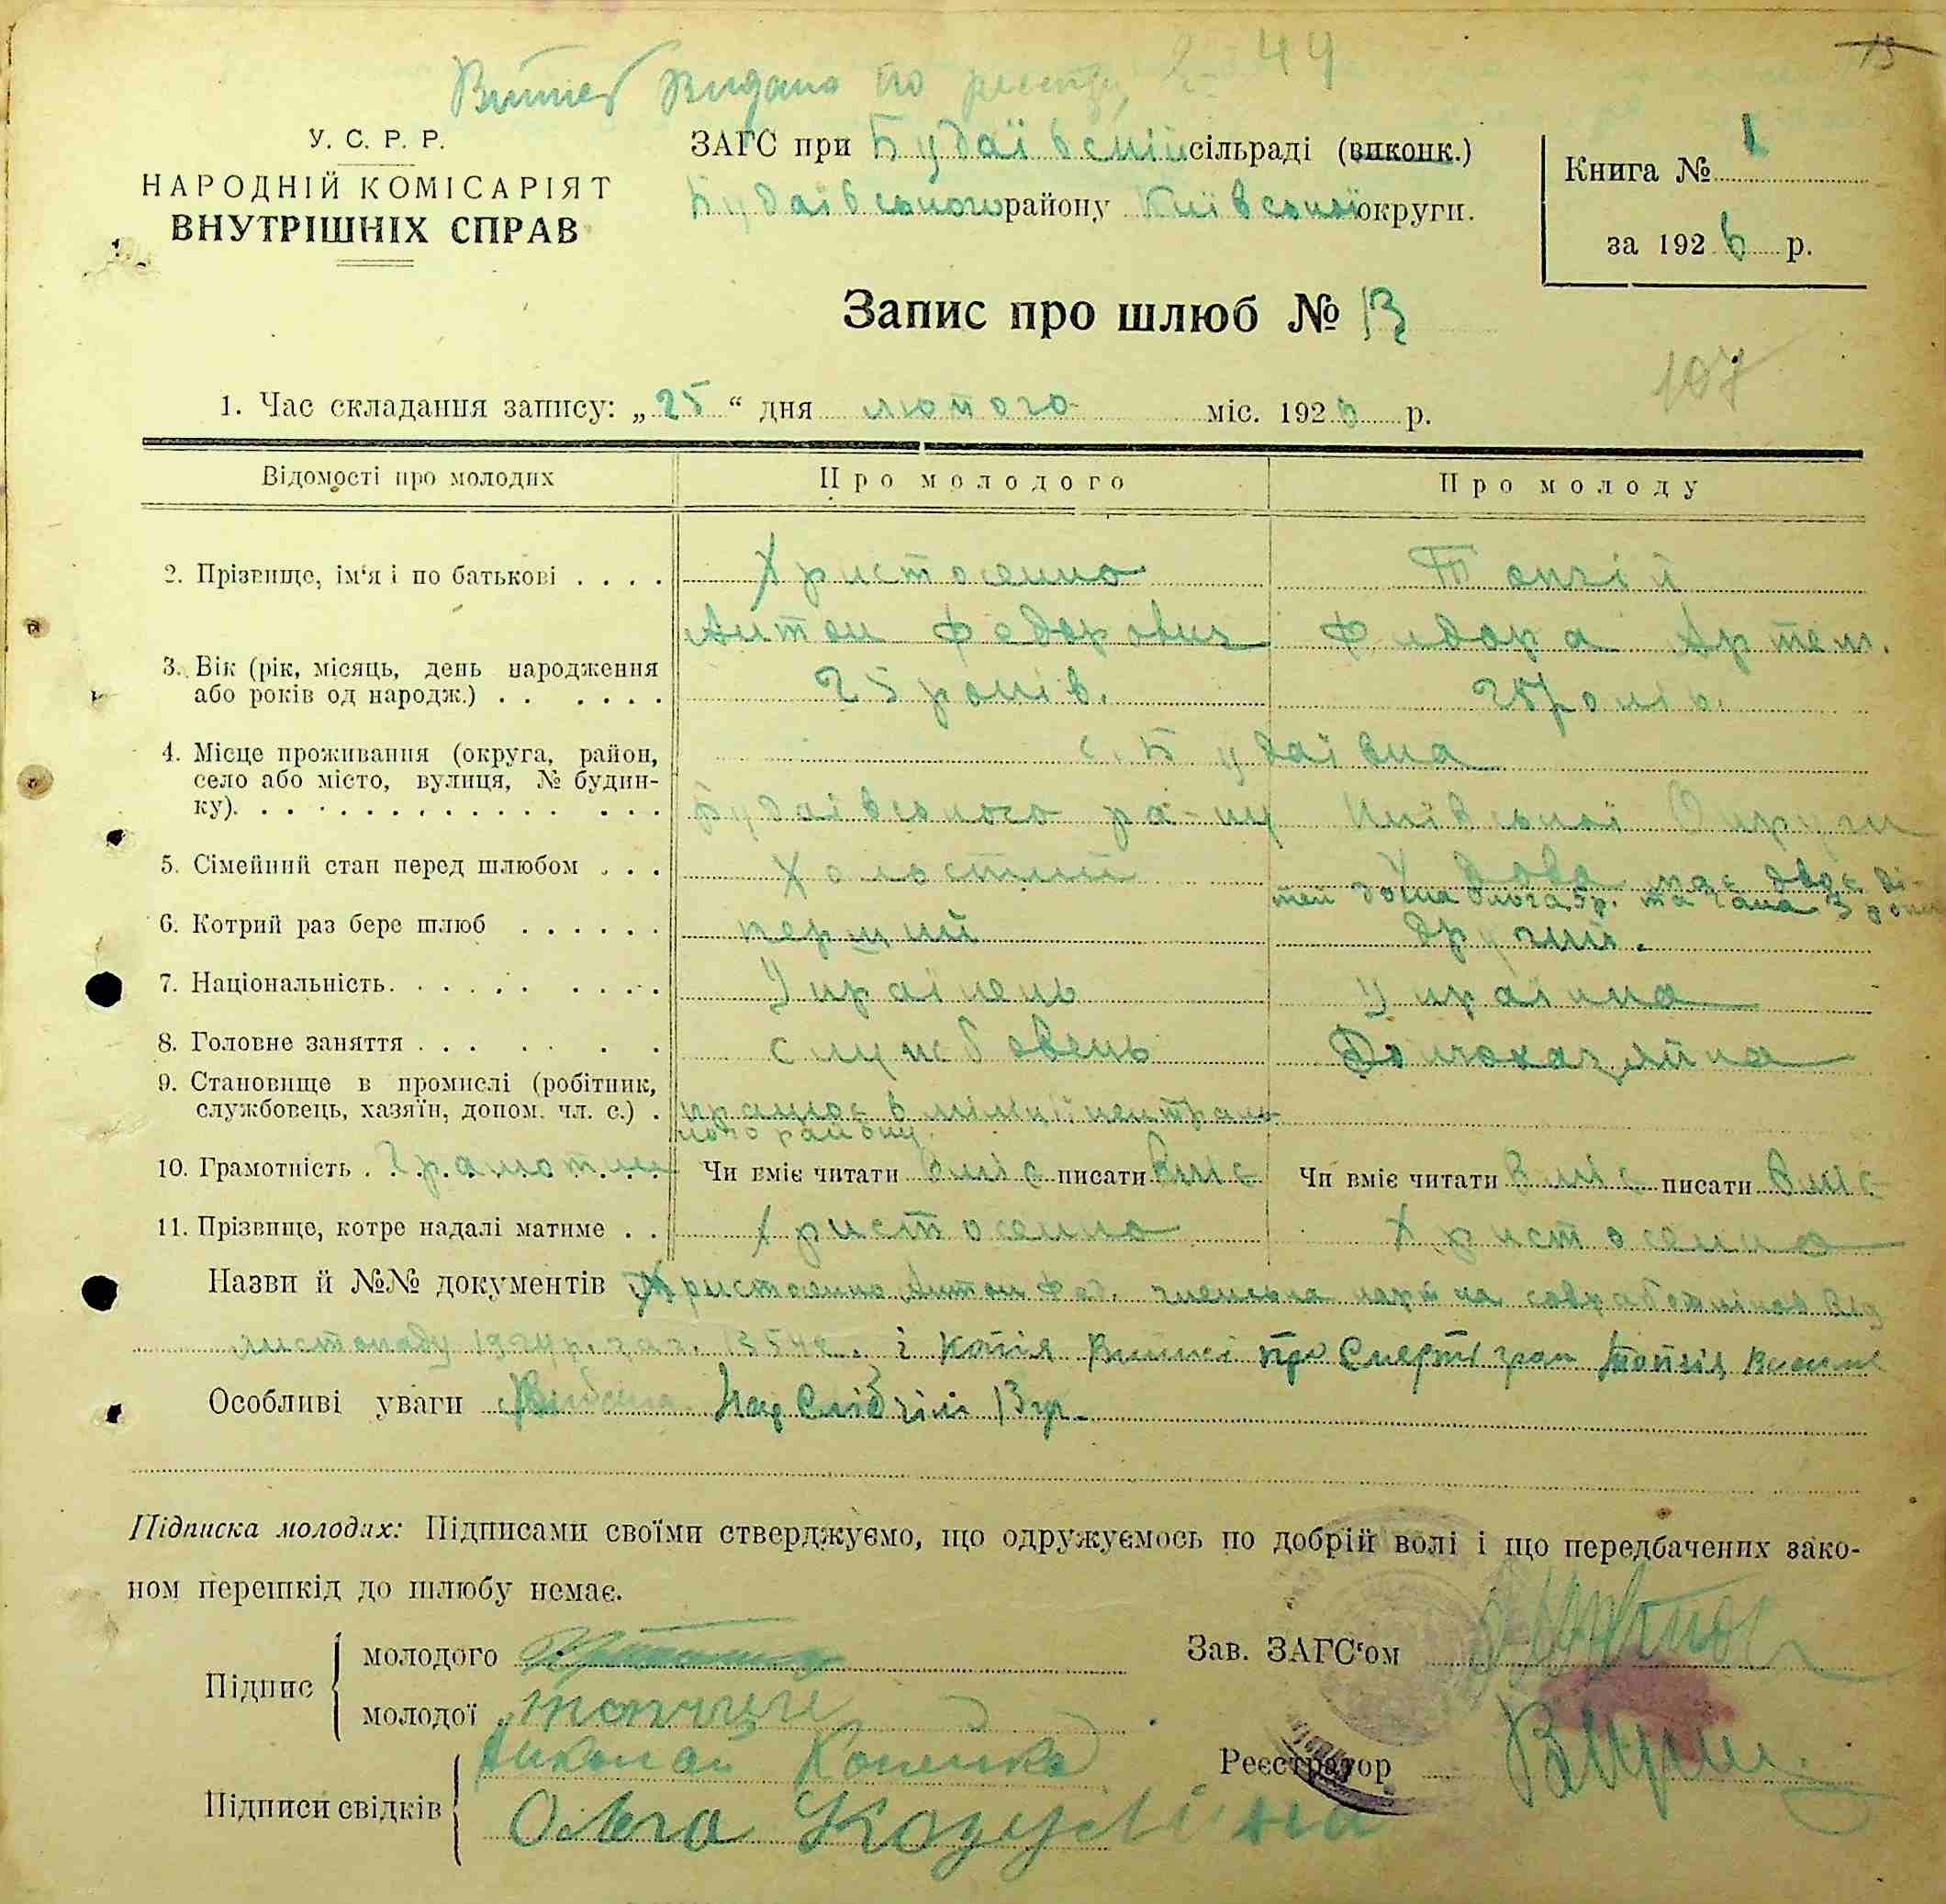 Витяг видано по реєстру № 44
13
У. С. Р. Р.
НАРОДНІЙ КОМІСАРІЯТ
ВНУТРІШНІХ СПРАВ
ЗАГС при Будаївській сільраді (виконк.)
Будаівського району Київської округи.
Книга № 1
за 1926 р.
Запис про шлюб № 13
107
1. Час складання запису: „25“ дня лютого міс. 1926 р.
Відомості про молодих Про молодого Про молоду
2. Прізвище, ім'я і по батькові . . . . Христосенко Топчій
Антон Федорович Фидора Артем.
3. Вік (рік, місяць, день народження
або років од народж.) . . . . . . 25 років. років.
4. Місце проживання (округа, район, с. Будаівка
село або місто, вулиця, № будин-
ку). Будаівського ра-ну Київської Округи
5. Сімейний стан перед шлюбом . . . Холостий Удова має двоє ді-
тей дочка Ольга 5 р. та 3 роки
6. Котрий раз бере шлюб . . . . . . перший другий.
7. Національність. Українець Українка
8. Головне заняття . . . службовець Домохазяйка
9. Становище в промислі (робітник,
службовець, хазяїн, допом. чл. с.) . працює в міліції централь
ного району.
10. Грамотність . Грамотні Чи вміє читати вміє писати вміє Чи вміє читати вміє писати вміє
11. Прізвище, котре надалі матиме . . Христосенко Христосенко
Назви й №№ документів Христосенко Антон Фед. членська совработніков від
листопаду 1924 р. за № і копія виписі про смерть гром Топчія
Особливі уваги 13 гр.
Підписка молодих: Підписами своїми стверджуємо, що одружуємось по добрій волі і що передбачених зако-
ном перешкід до шлюбу немає.
Підпис
молодого
молодої Топчий
Зав. ЗАГС'ом
Підписи свідків
Николай Копенко
Ольга
Реєстратор